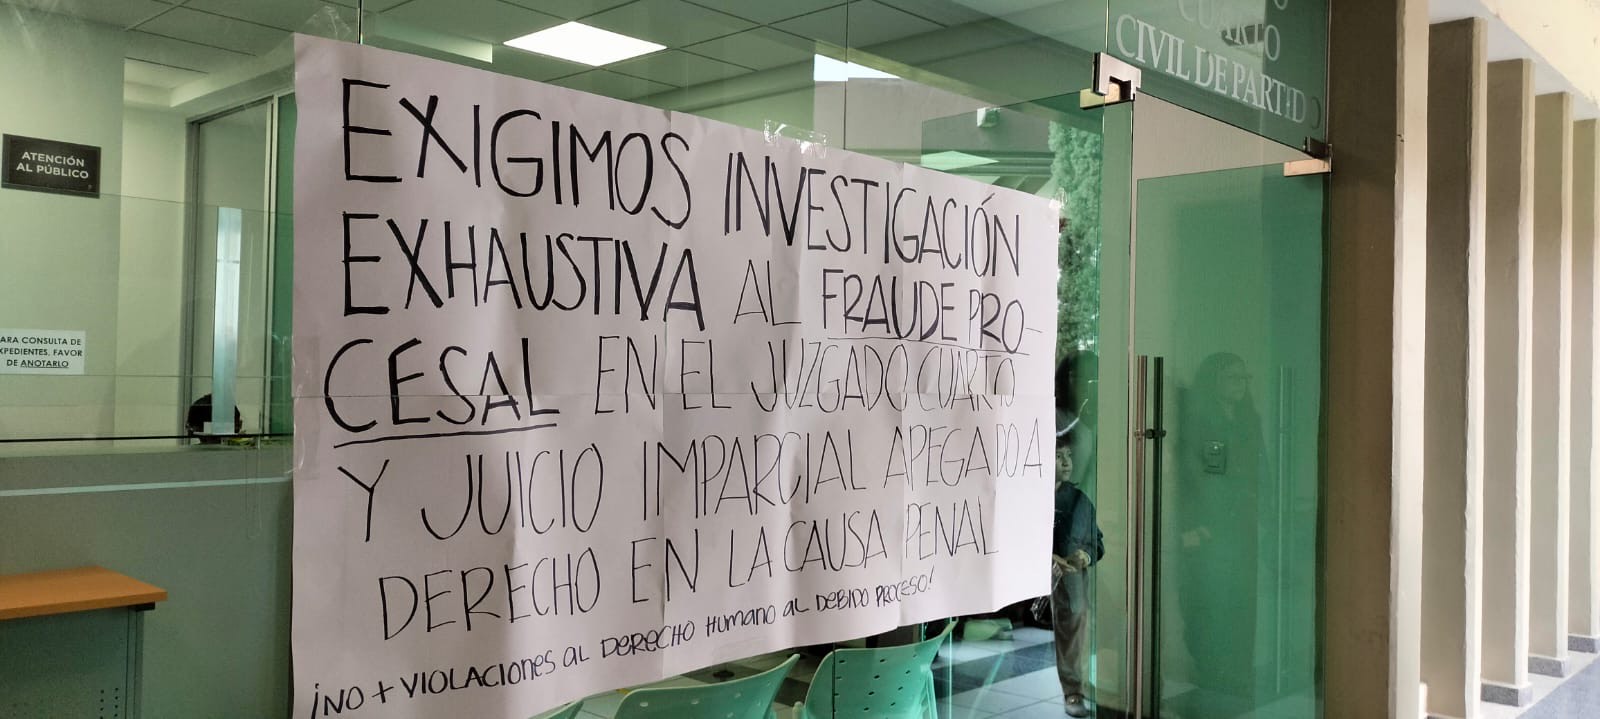 CUARTO
CIVIL DE PARTIDO
ATENCIÓN
AL PÚBLICO
EXIGIMOS INVESTIGACIÓN
EXHAUSTIVA AL FRAUDE PRO-
CESAL EN EL JUZGADO CUARTO
Y JUICIO IMPARCIAL APEGADO A
DERECHO EN LA CAUSA PENAL
¡NO + VIOLACIONES AL DERECHO HUMANO AL DEBIDO PROCESO!
ARA CONSULTA DE
XPEDIENTES, FAVOR
DE ANOTARLO